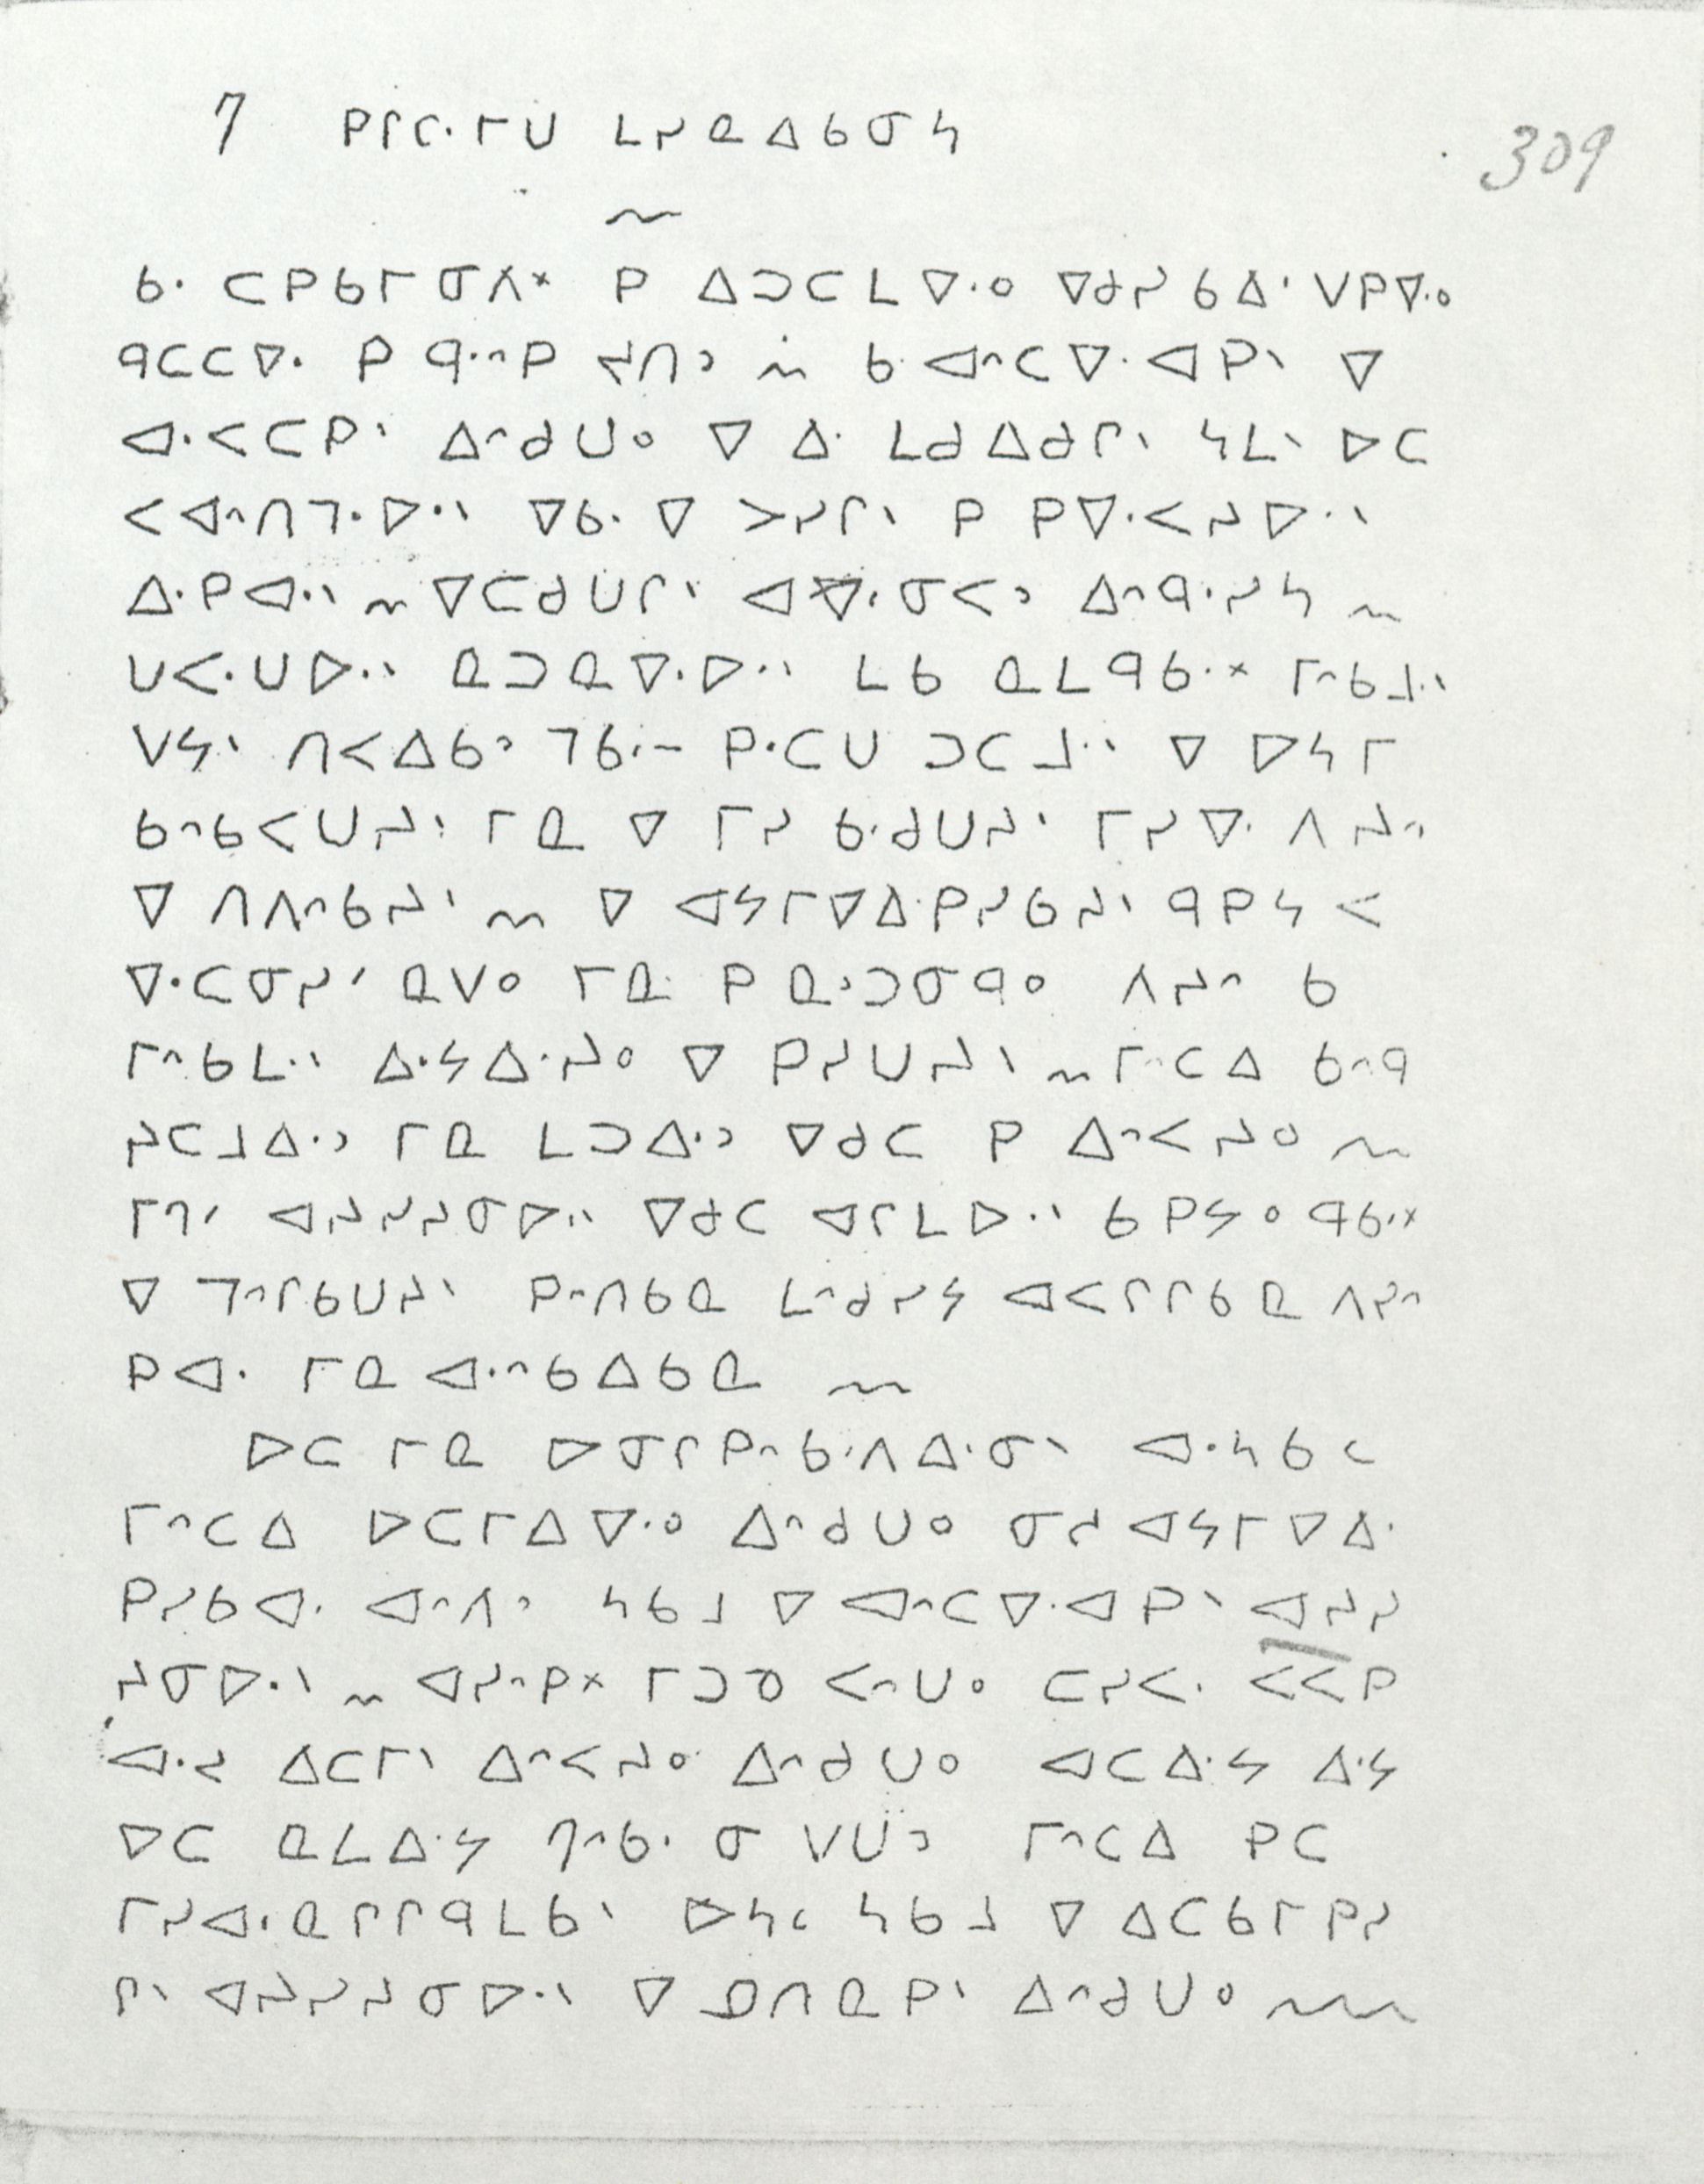 7 ᑭᒋᒋ·ᒥᑌ ᒪᓯᓇᐃᑲᓂᔭ
309
ᑲ· ᑕᑭᑲᒥᓂᐱ× ᑭ ᐃᑐᑕᒪᐁ·ᐤ ᐁᑯᓯ ᑲᐃ· ᐯᑭᐁ·ᐤ
ᑫᑕᑕᐁ· ᑭ ᑫ·ᐢᑭ ᔪᑎᐣ ~ ᑲ· ᐊᐢᑕᐁ·ᐊᑭᐠ ᐁ
ᐊ·ᐸᑕᑭᐠ ᐃᐢᑯᑌᐤ ᐁ ᐃ· ᒪᑯᐃᑯᒋᐠ ᓴᒪᐠ ᐅᑕ
ᐸᐊᐢᑎᒣ·ᐅ·ᐠ ᐁᑲ· ᐁ ᐳᓯᒋᐠ ᑭ ᑭᐁ·ᐸᔨᐅ·ᐠ
ᐃ·ᑭᐊ·ᐠ ~ ᐁᑕᑯᑌᒋᐠ ᐊᐁ·ᓂᐸᐣ ᐃᐢᑫ·ᓯᓴ ~
ᑌᐸ·ᑌᐅ·ᐠ ᓇᑐᓇᐁ·ᐅ·ᐠ ᒪᑲ ᓇᒪ ᑫᑲ·× ᒥᐢᑲᒧ·ᐠ
ᐯᔭᐠ ᑎᐸᐃᑲᐣ ᒣᑲ·ᐨ ᑭ·ᑕᑌ ᑐᑕᒧ·ᐠ ᐁ ᐅᓴᒥ
ᑲᐢᑲᐸᑌᔨᐠ ᒥᓇ ᐁ ᒥᓯ ᑲ·ᑯᑌᔨᐠ ᒥᓯᐁ· ᐱᔨᐢ
ᐁ ᑎᐱᐢᑲᔨᐠ ~ ᐁ ᐊᔭᒥᐁᐃ·ᑭᓯᑲᔨᐠ ᑫᑭᓴᐸ
ᐁ·ᑕᓂᓯᐟ ᓇᐯᐤ ᒥᓇ ᑭ ᓇᐣᑐᓂᑫᐤ ᐱᔨᐢ ᑲ
ᒥᐢᑲᒪ·ᐠ ᐃ·ᔭᐃ·ᔨᐤ ᐁ ᑭᓯᑌᔨᐠ ~ ᒥᐢᑕᐃ ᑲᐢᑫ
ᔨᑕᒧᐃ·ᐣ ᒥᓇ ᒪᑐᐃ·ᐣ ᐁᑯᑕ ᑭ ᐃᐢᐸᔨᐤ ~
ᒥᒉᐟ ᐊᔨᓯᔨᓂᐅ·ᐠ ᐁᑯᑕ ᐊᒋᒪᐅ·ᐠ ᑲ ᑭᔭᐤ ᑫᑲ·×
ᐁ ᒣᐢᒋᑲᑌᔨᐠ ᑭᐢᑎᑲᓇ ᒪᐢᑯᓯᔭ ᐊᐸᒋᒋᑲᓇ ᐱᔨᐢ
ᑭᐊ· ᒥᓇ ᐊ·ᐢᑲᐃᑲᓇ ~
ᐅᑕ ᒥᓇ ᐅᓂᒋᑭᐢᑲ·ᐱᐃ·ᓂᐠ ᐊ·ᓴᑲᑦ
ᒥᐢᑕᐃ ᐅᑕᒥᐃᐁ·ᐤ ᐃᐢᑯᑌᐤ ᓂᓱ ᐊᔭᒥᐁᐃ·
ᑭᓯᑲᐊ· ᐊᐢᐱᐣ ᓴᑲᒧ ᐁ ᐊᐢᑕᐁ·ᐊᑭᐠ ᐊᔨᓯ
ᔨᓂᐅ·ᐠ ~ ᐊᔨᐢᑭ× ᒥᑐᓀ ᐸᐢᑌᐤ ᑕᓯᐸ· ᐸᐸᑭ
ᐊ·ᓱ ᐃᑕᒥᐠ ᐃᐢᐸᔨᐤ ᐃᐢᑯᑌᐤ ᐊᑕᐃ·ᔭ ᐃ·ᔭ
ᐅᑕ ᓇᒪᐃ·ᔭ ᒉᐢᑲ· ᓂ ᐯᑌᐣ ᒥᐢᑕᐃ ᑭᑕ
ᒥᓯᐊ·ᓇᒋᒋᑫᒪᑲᐠ ᐅᓴᑦ ᓴᑲᒧ ᐁ ᐃᑕᑲᒥᑭᓯ
ᒋᐠ ᐊᔨᓯᔨᓂᐅ·ᐠ ᐁ ᓄᑎᓇᑭᐠ ᐃᐢᑯᑌᐤ ~